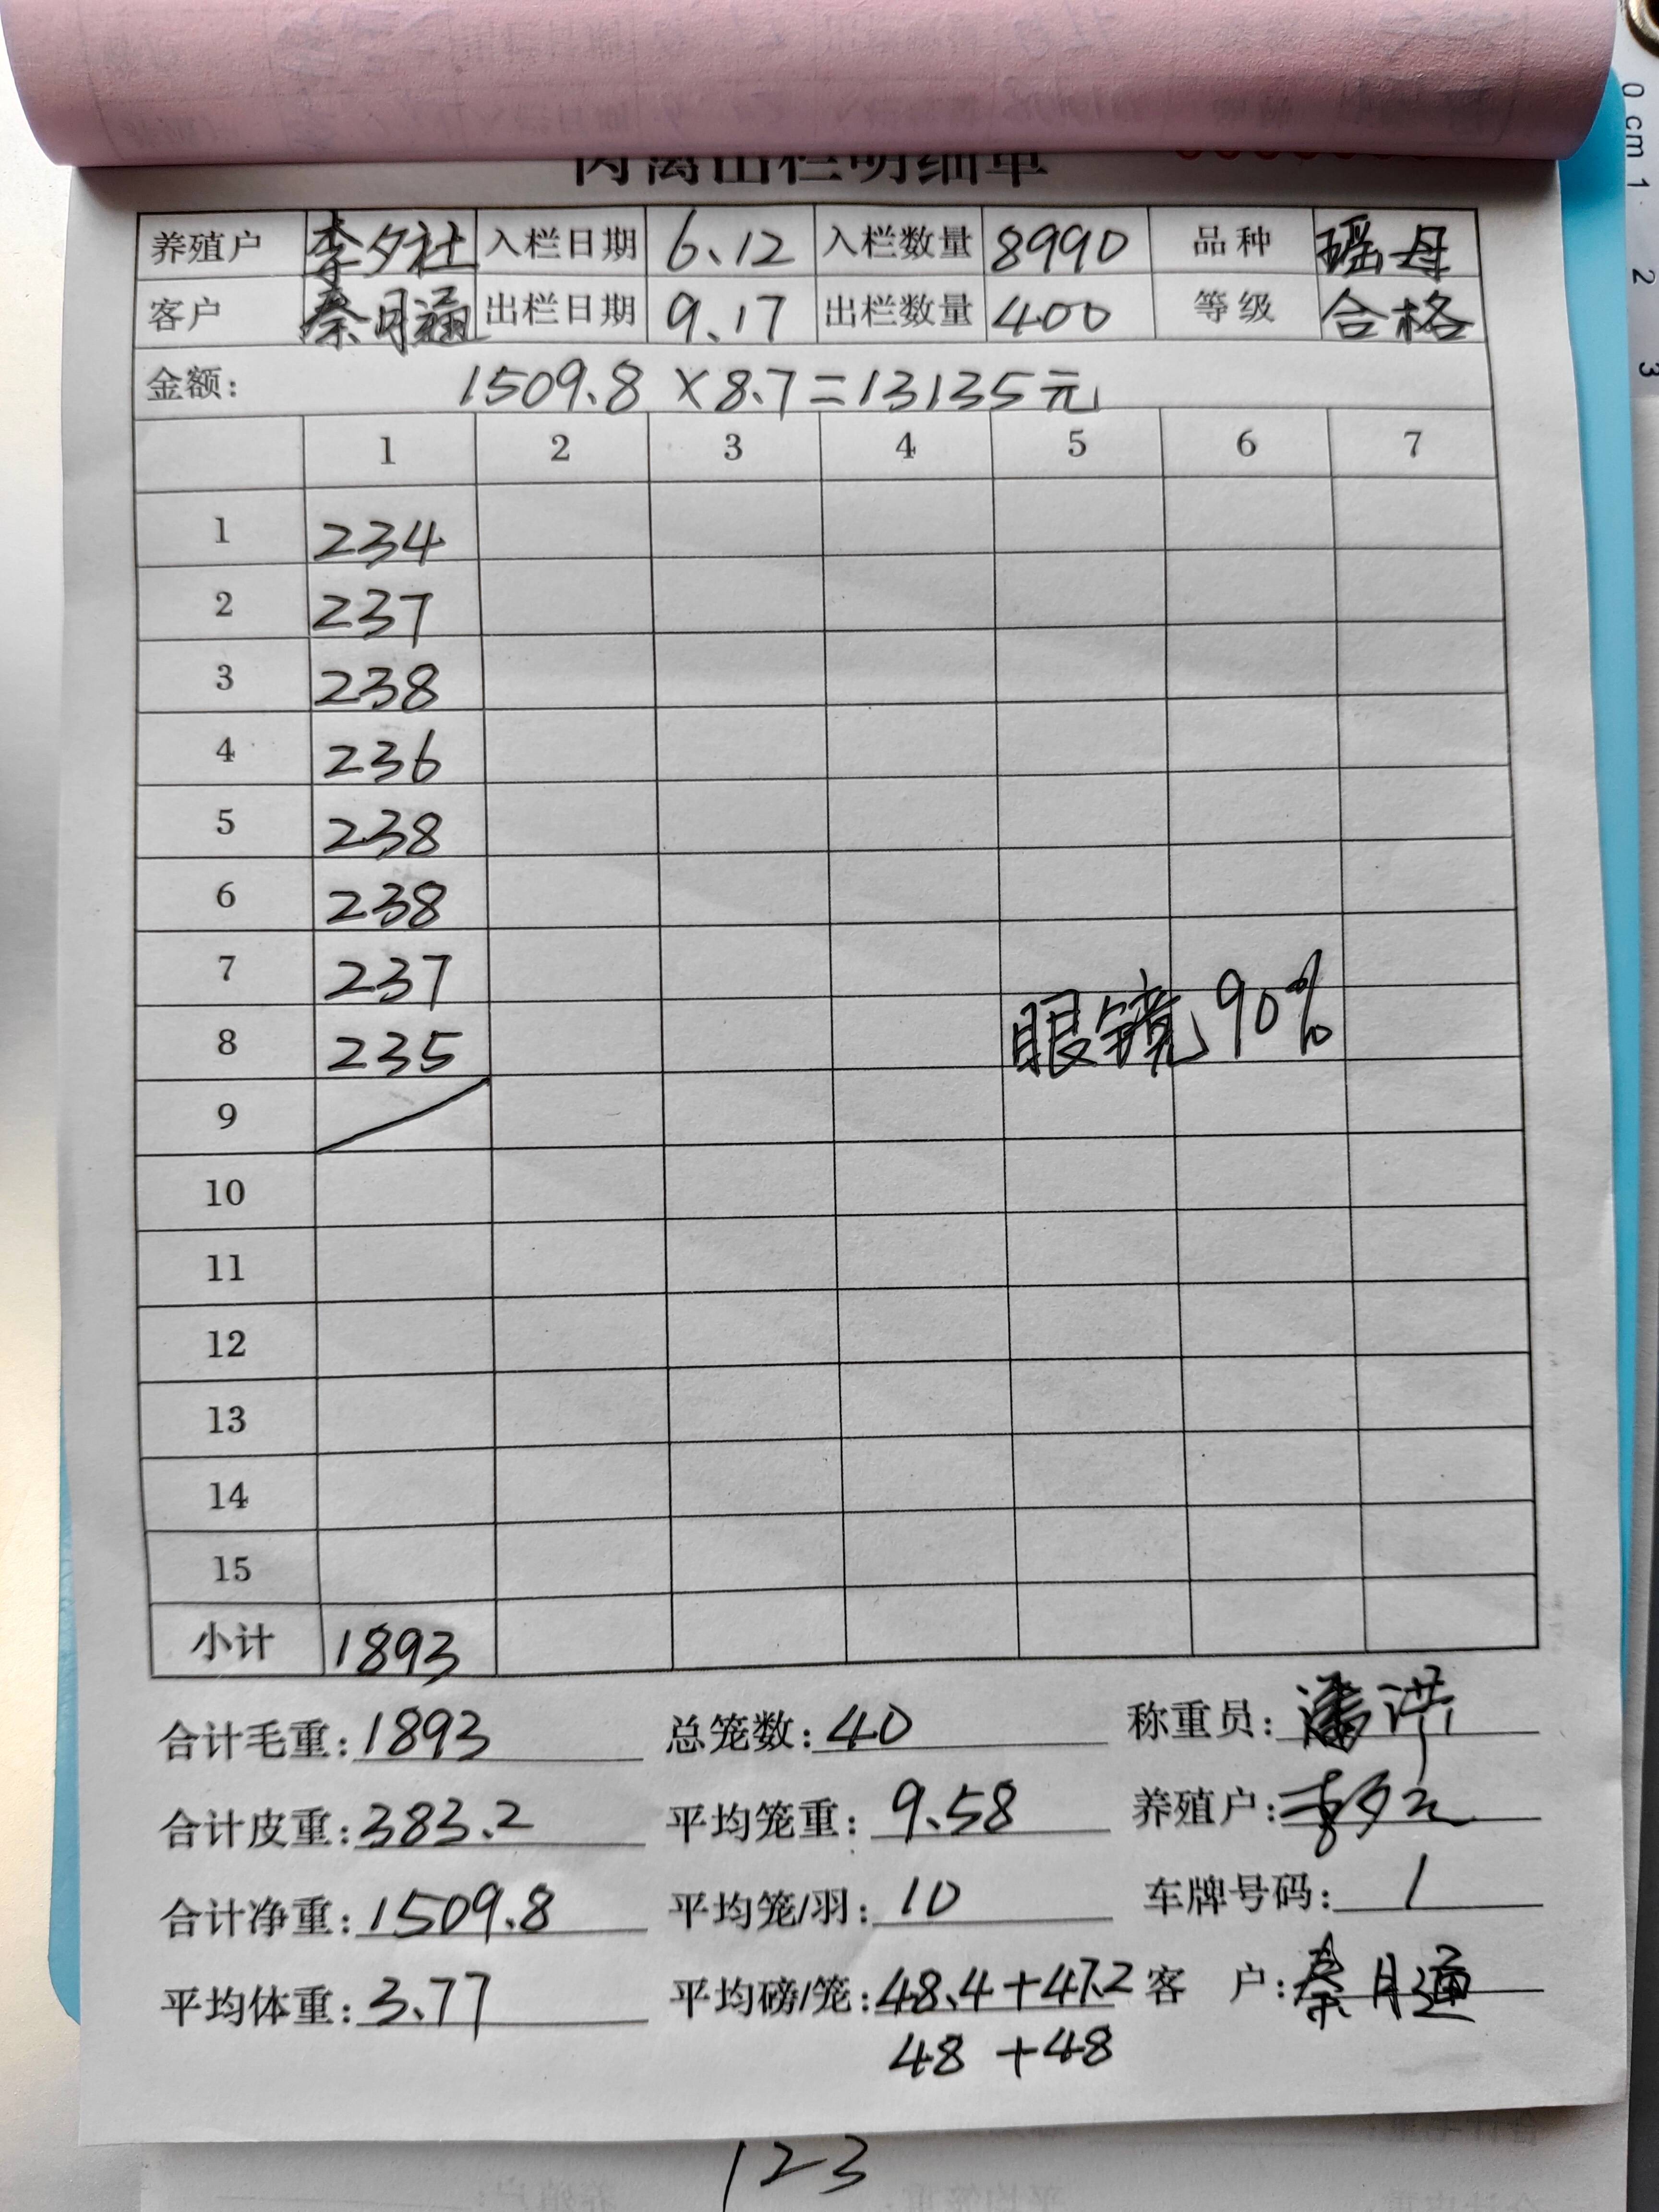 肉禽出栏明细单
养殖户 李夕社 入栏日期 6.12 入栏数量 8990 品种 瑶母
客户 秦月通 出栏日期 9.17 出栏数量 400 等级 合格
金额: 1509.8×8.7=13135元
1 2 3 4 5 6 7
1 234
2 237
3 238
4 236
5 238
6 238
7 237
8 235 眼镜90%
9
10
11
12
13
14
15
小计 1893
合计毛重:1893 总笼数:40 称重员:潘洪
合计皮重:383.2 平均笼重:9.58 养殖户:
合计净重:1509.8 平均笼/羽:10 车牌号码:1
平均体重:3.77 平均磅/笼:48.4+47.2 客户:秦月通
48+48
123
0 cm 1 2 3